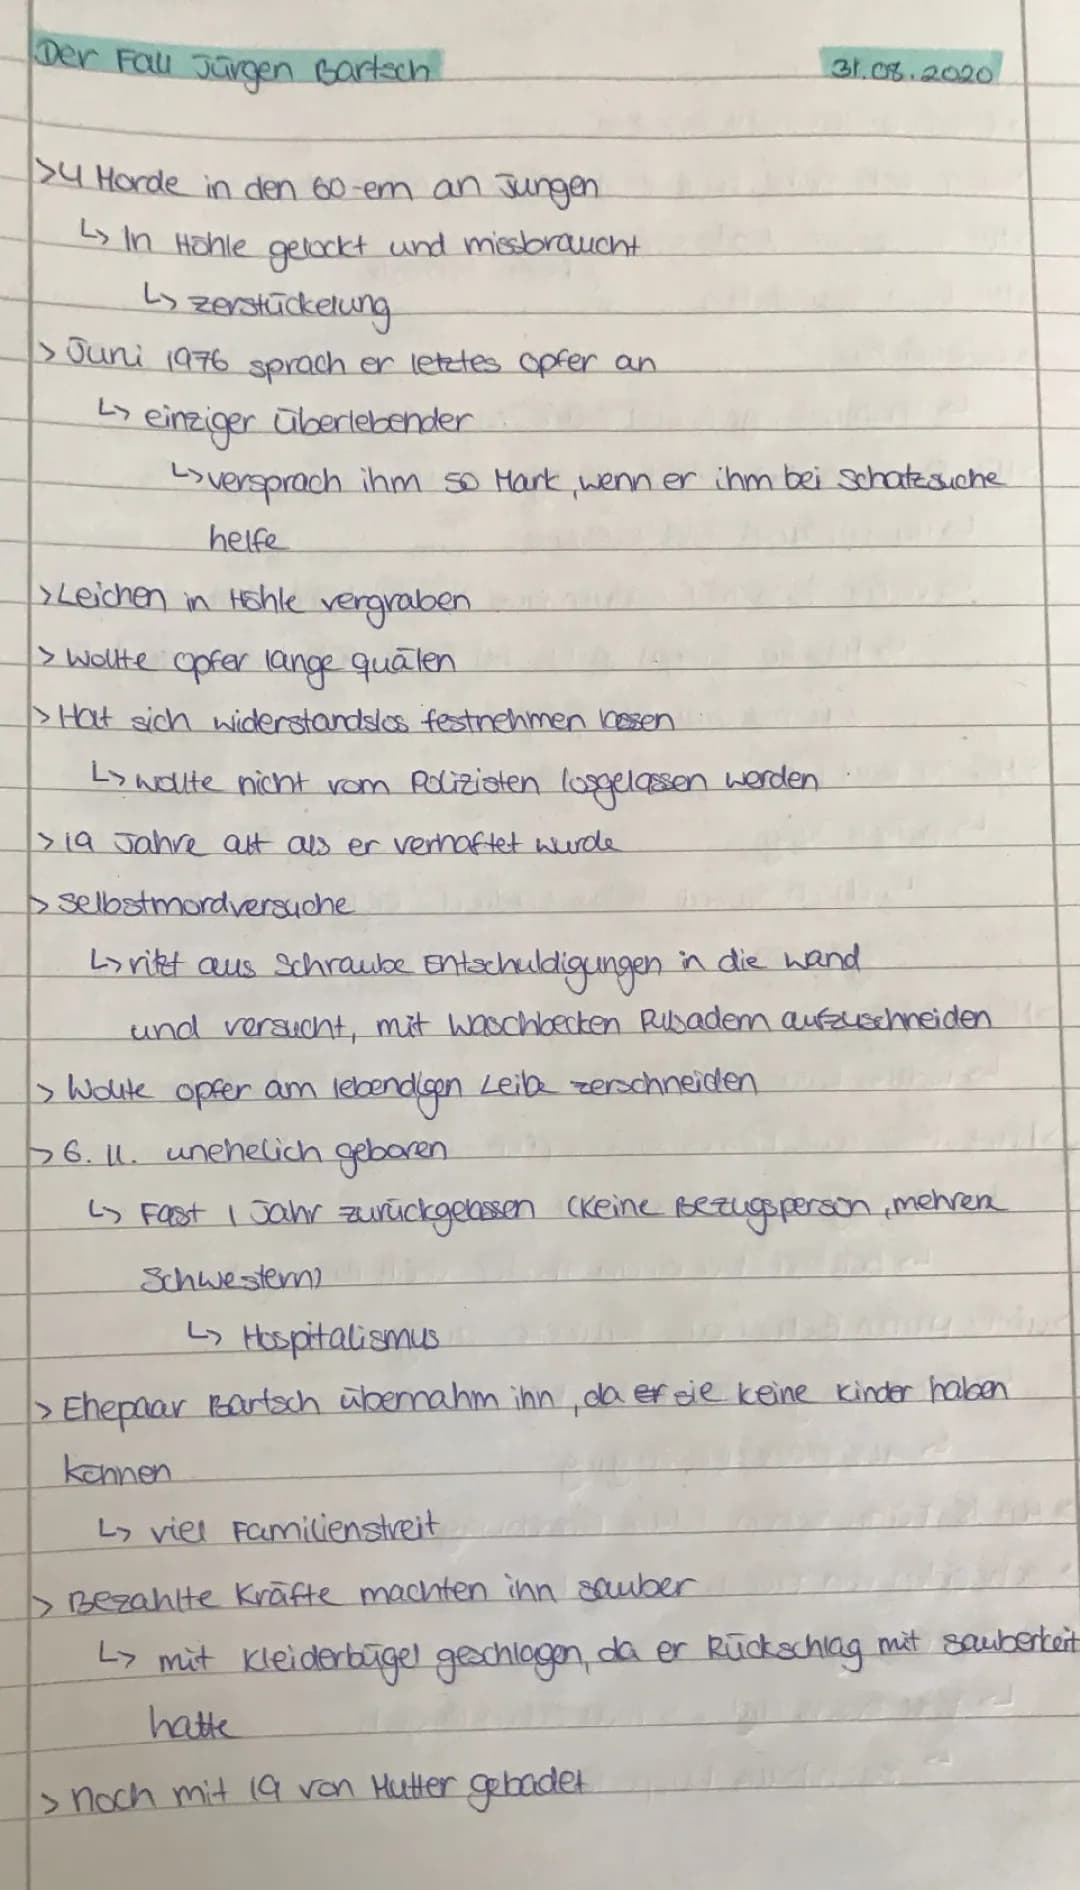 Der Fall Jürgen Bartsch 31.08.2020
>4 Morde in den 60-ern an Jungen
↳ In Höhle gelockt und missbraucht
↳ zerstückelung
> Juni 1976 sprach er letztes Opfer an
↳ einziger überlebender
↳ versprach ihm 50 Mark, wenn er ihm bei Schatzsuche
helfe
> Leichen in Höhle vergraben
> Wollte opfer lange quälen
> Hat sich widerstandslos festnehmen lassen
↳ wollte nicht vom Polizisten losgelassen werden
> 19 Jahre alt als er verhaftet wurde
> Selbstmordversuche
↳ ritzt aus Schraube Entschuldigungen in die wand
und versucht, mit Waschbecken Pulsadern aufzuschneiden
> Wollte opfer am lebendigen Leibe zerschneiden
> 6. 11. unehelich geboren
↳ Fast 1 Jahr zurückgelassen (Keine Bezugsperson, mehrere
Schwestern)
↳ Hospitalismus
> Ehepaar Bartsch übernahm ihn, da er sie keine Kinder haben
können
↳ viel Familienstreit
> Bezahlte Kräfte machten ihn sauber
↳ mit Kleiderbügel geschlagen, da er Rückschlag mit Sauberkeit
hatte
> noch mit 19 von Mutter gebadet